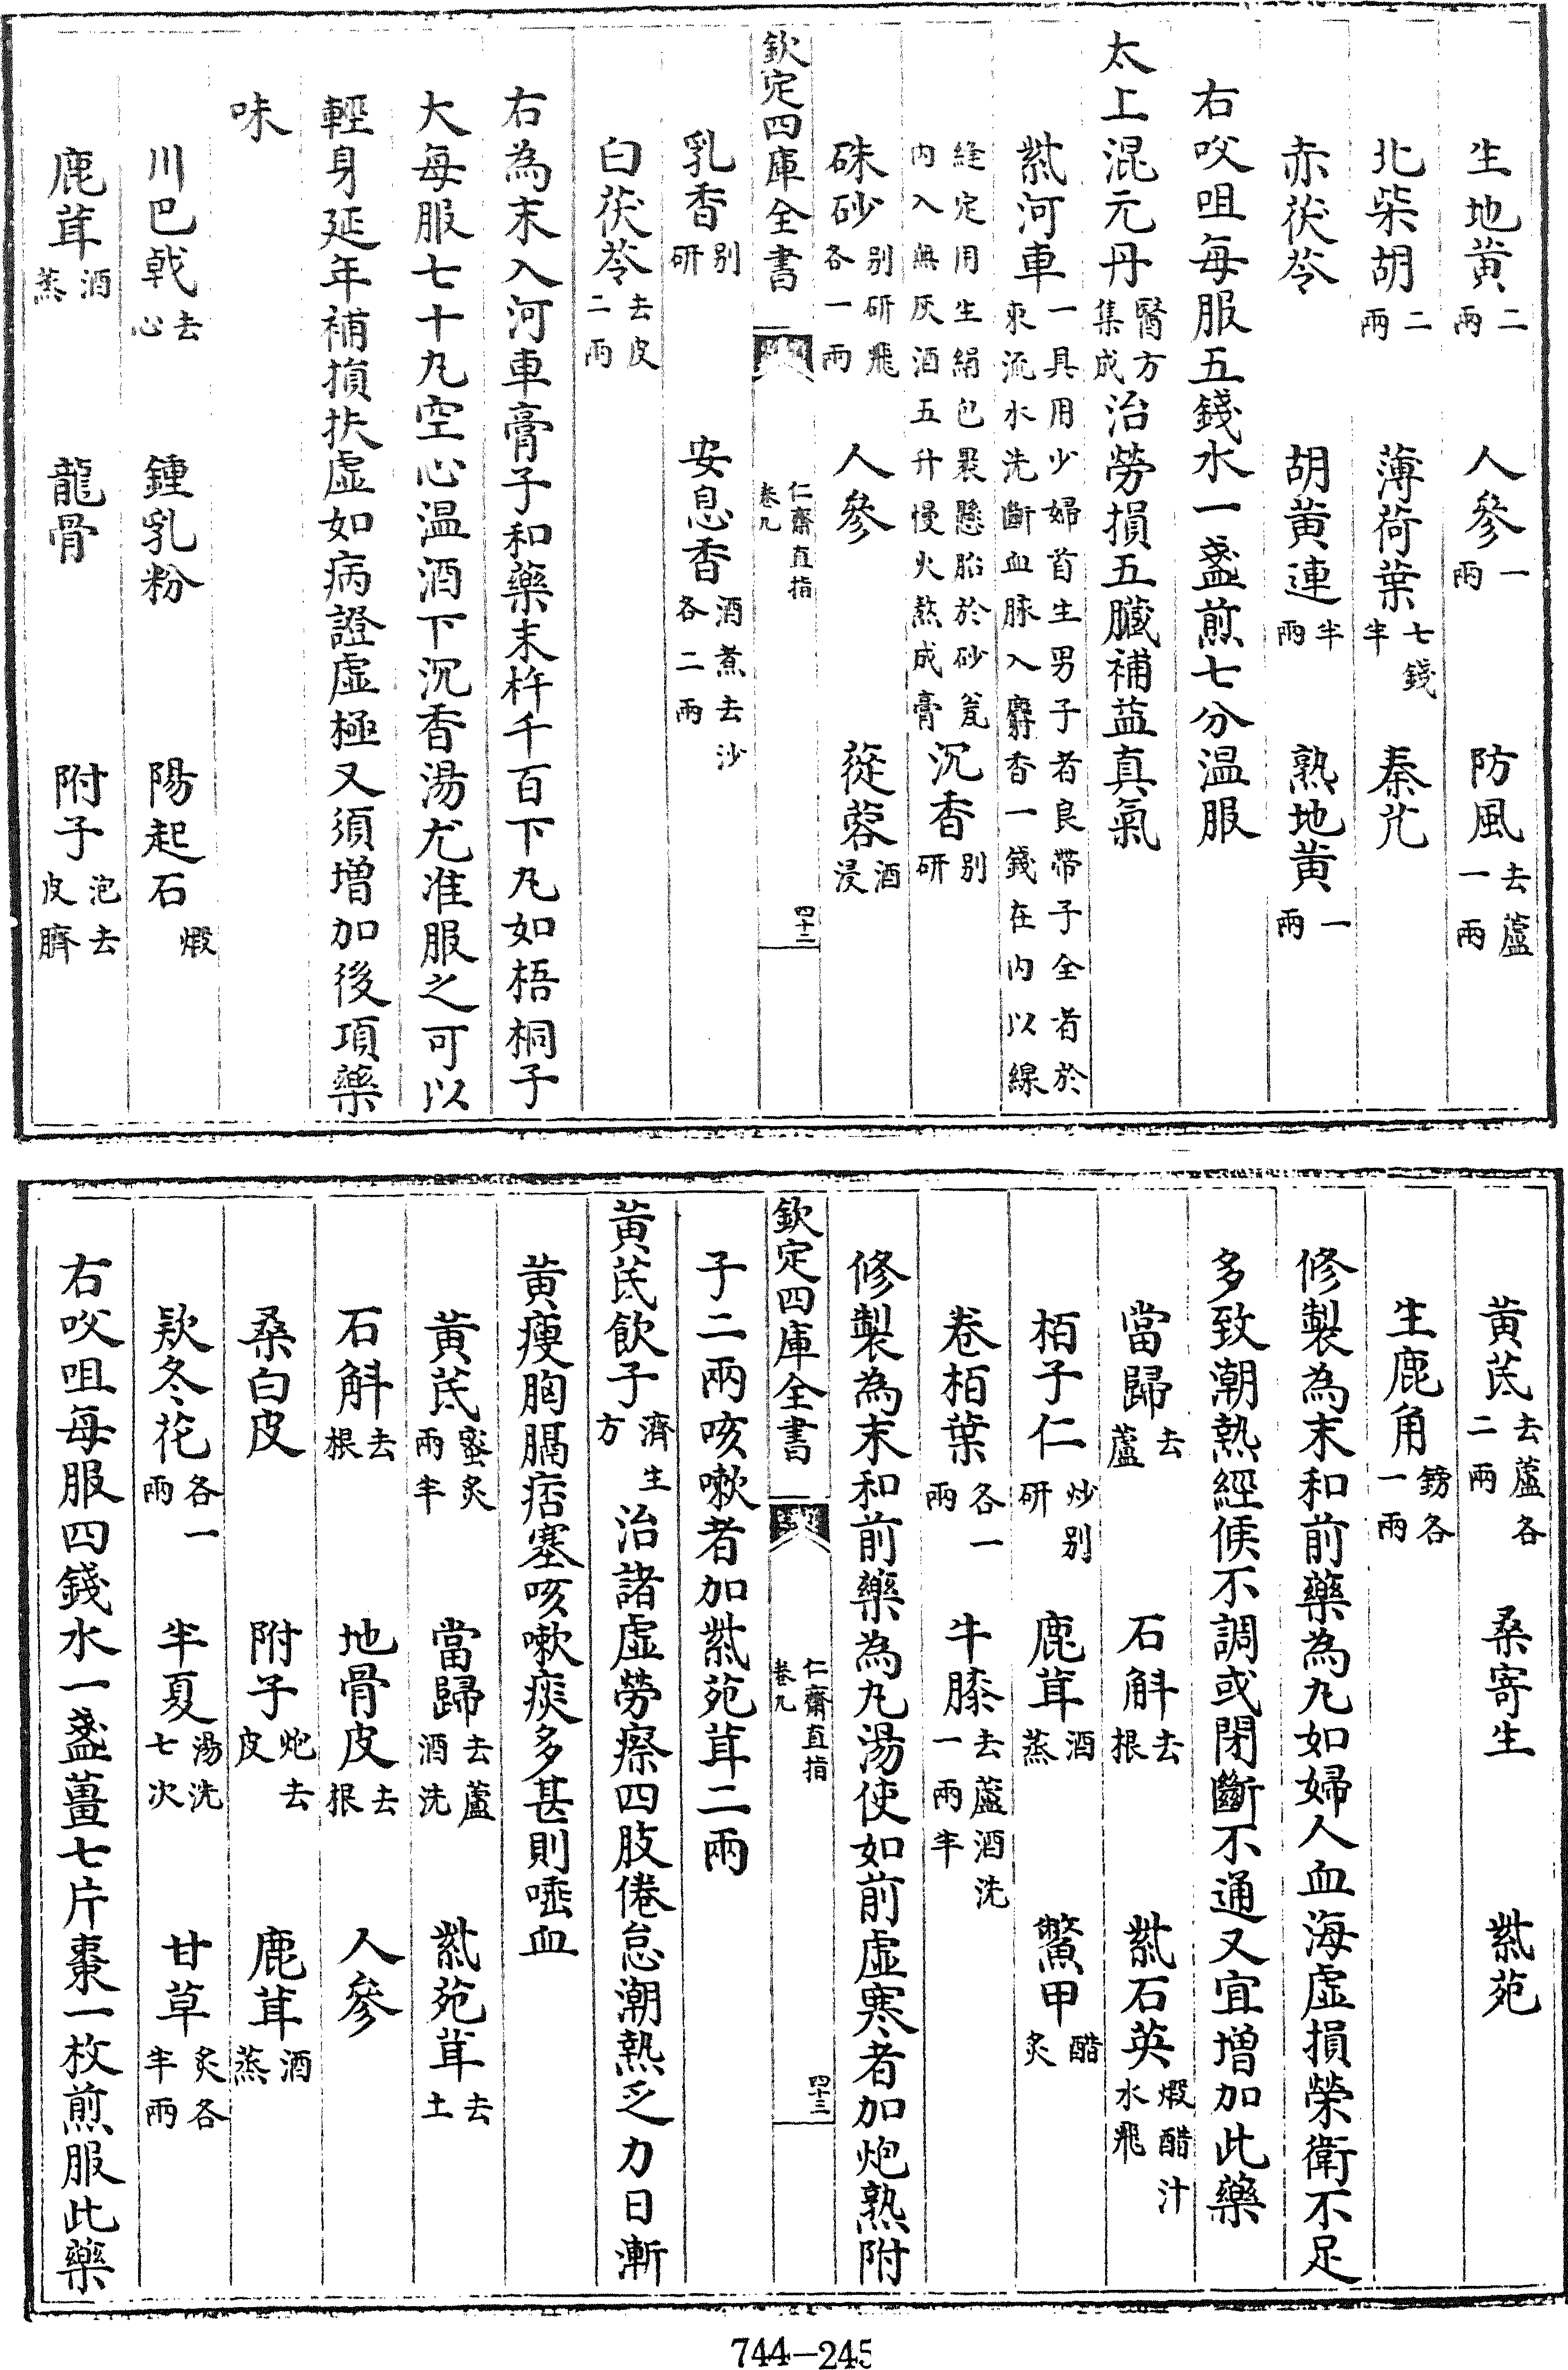 生地黄二兩 人參一兩 防風去蘆一兩
北柴胡二兩 薄荷葉七錢半 秦艽
赤茯苓 胡黄連半兩 熟地黄一兩
右㕮咀每服五錢水一盞煎七分温服
太上混元丹醫方集成治勞損五臟補益真氣
紫河車一具用少婦首生男子者良帶子全者於東流水洗斷血脉入麝香一錢在内以線
縫定用生絹包裹懸胎於砂瓮内入無灰酒五升慢火熬成膏 沉香别研
硃砂别研飛各一兩 人參 蓯蓉酒浸
欽定四庫全書 仁齋直指卷九 四十二
乳香别研 安息香酒煮去沙各二兩
白茯苓去皮二兩
右為末入河車膏子和藥末杵千百下丸如梧桐子
大每服七十丸空心温酒下沉香湯尤准服之可以
輕身延年補損扶虚如病證虚極又須增加後項藥
味
川巴戟去心 鍾乳粉 陽起石煅
鹿茸酒蒸 龍骨 附子泡去皮臍
黄芪去蘆各二兩 桑寄生 紫苑
生鹿角鎊各一兩
修製為末和前藥為丸如婦人血海虚損榮衛不足
多致潮熱經候不調或閉斷不通又宜增加此藥
當歸去蘆 石斛去根 紫石英煅醋汁水飛
栢子仁炒别研 鹿茸酒蒸 鱉甲醋炙
卷栢葉各一兩 牛膝去蘆酒洗一兩半
修製為末和前藥為丸湯使如前虚寒者加炮熟附
欽定四庫全書 仁齋直指卷九 四十三
子二兩咳嗽者加紫苑茸二兩
黄芪飲子濟生方治諸虚勞瘵四肢倦怠潮熱乏力日漸
黄瘦胸膈痞塞咳嗽痰多甚則唾血
黄芪蜜炙兩半 當歸去蘆酒洗 紫苑茸去土
石斛去根 地骨皮去根 人參
桑白皮 附子炮去皮 鹿茸酒蒸
款冬花各一兩 半夏湯洗七次 甘草炙各半兩
右㕮咀每服四錢水一盞薑七片棗一枚煎服此藥
744-245